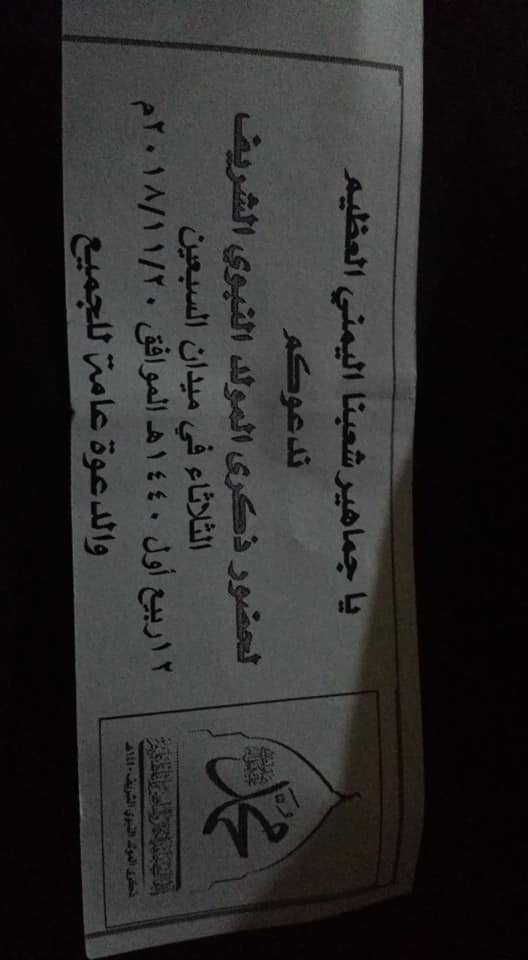 يا جماهير شعبنا اليمني العظيم
ندعوكم
لحضور ذكرى المولد النبوي الشريف
الثلاثاء في ميدان السبعين
١٢ ربيع أول ١٤٤٠هـ الموافق ٢٠١٨/١١/٢٠م
والدعوة عامة للجميع
محمد
ذكرى المولد النبوي الشريف ١٤٤٠هـ